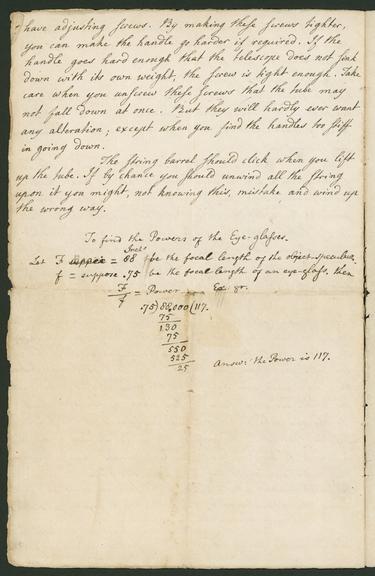 have adjusting screws. By making these screws tighter,
you can make the handle go harder if required. If the
handle goes hard enough that the telescope does not sink
down with its own weight, the screw is tight enough. Take
care when you unscrew these screws that the tube may
not fall down at once. But they will hardly ever want
any alteration; except when you find the handles too stiff
in going down.
The string barrel should click when you lift
up the tube. If by chance you should unwind all the string
upon it you might, not knowing this, mistake and wind up
the wrong way.
To find the Powers of the Eye-glasses.
Inch
Let F = 88 be the focal length of the object-speculum
f = suppose .75 be the focal length of an eye-glass, then
F/f = Power Ex: gr.
.75)88,000(117.
75
130
75
550
525
25
Answ: the Power is 117.